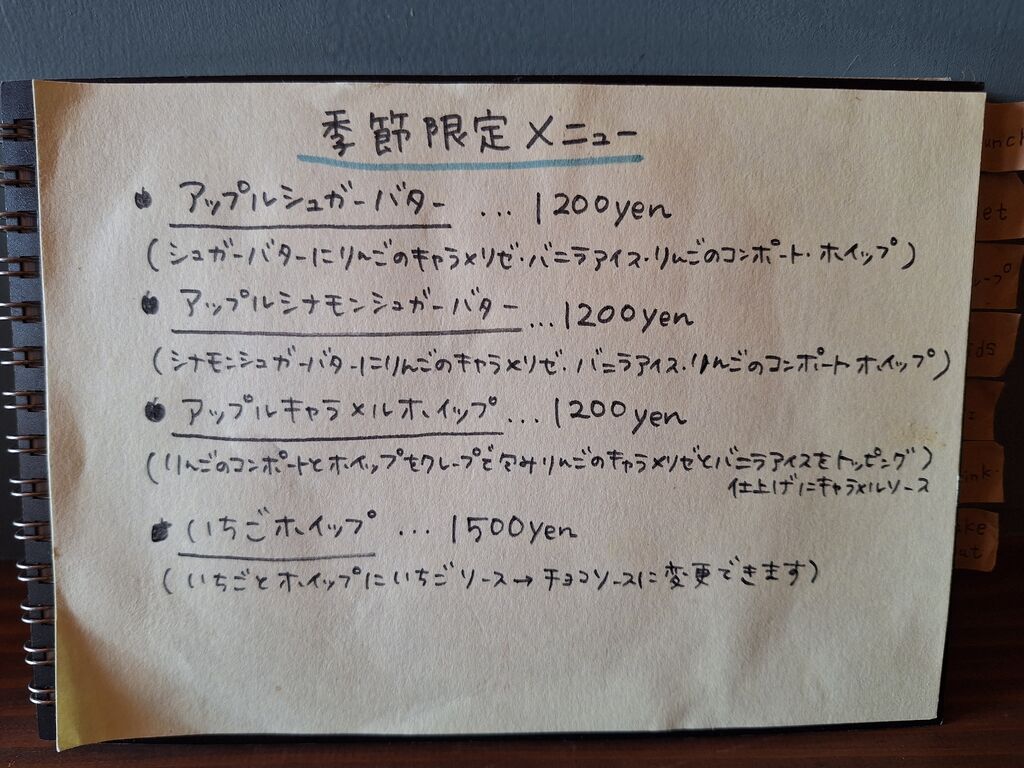 季節限定メニュー
アップルシュガーバター ... 1200yen
(シュガーバターにりんごのキャラメリゼ・バニラアイス・りんごのコンポート・ホイップ)
アップルシナモンシュガーバター ... 1200yen
(シナモンシュガーバターにりんごのキャラメリゼ・バニラアイス・りんごのコンポート ホイップ)
アップルキャラメルホイップ ... 1200yen
(りんごのコンポートとホイップをクレープで包みりんごのキャラメリゼとバニラアイスをトッピング)
仕上げにキャラメルソース
いちごホイップ ... 1500yen
(いちごとホイップにいちごソース→チョコソースに変更できます)